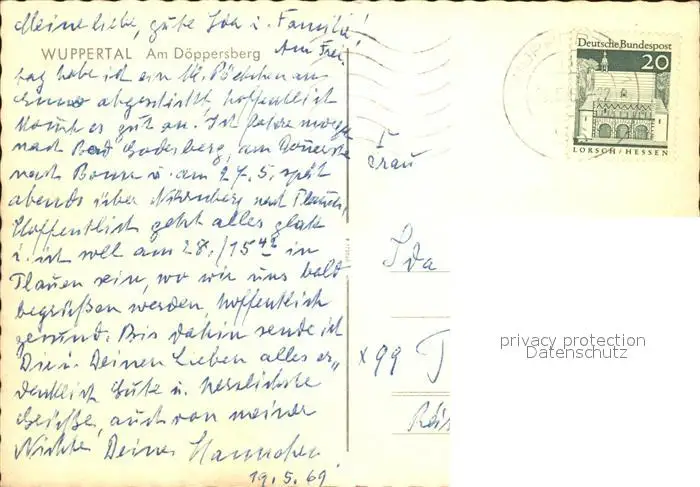 Meine liebe, gute Ida u. Familie!
WUPPERTAL Am Döppersberg
Am Frei-
tag habe ich ein kl. Päckchen an
abgeschickt hoffentlich
kommt es gut an. Ich fahre morgen
nach Bad Godesberg, am Donnerstag
nach Bonn u. am 27.5. spät
abends über Nürnberg nach Plauen.
Hoffentlich geht alles glatt
u. ich soll am 28./15 42 in
Plauen sein, wo wir uns bald
begrüßen werden, hoffentlich
gesund. Bis dahin sende ich
Dir u. Deinen Lieben alles er-
denklich Gute u. herzlichste
Grüße, auch von meiner
Nichte Deine Hannchen
19.5.69.
Frau
Ida
x 99
Deutsche Bundespost
20
LORSCH/HESSEN
privacy protection
Datenschutz